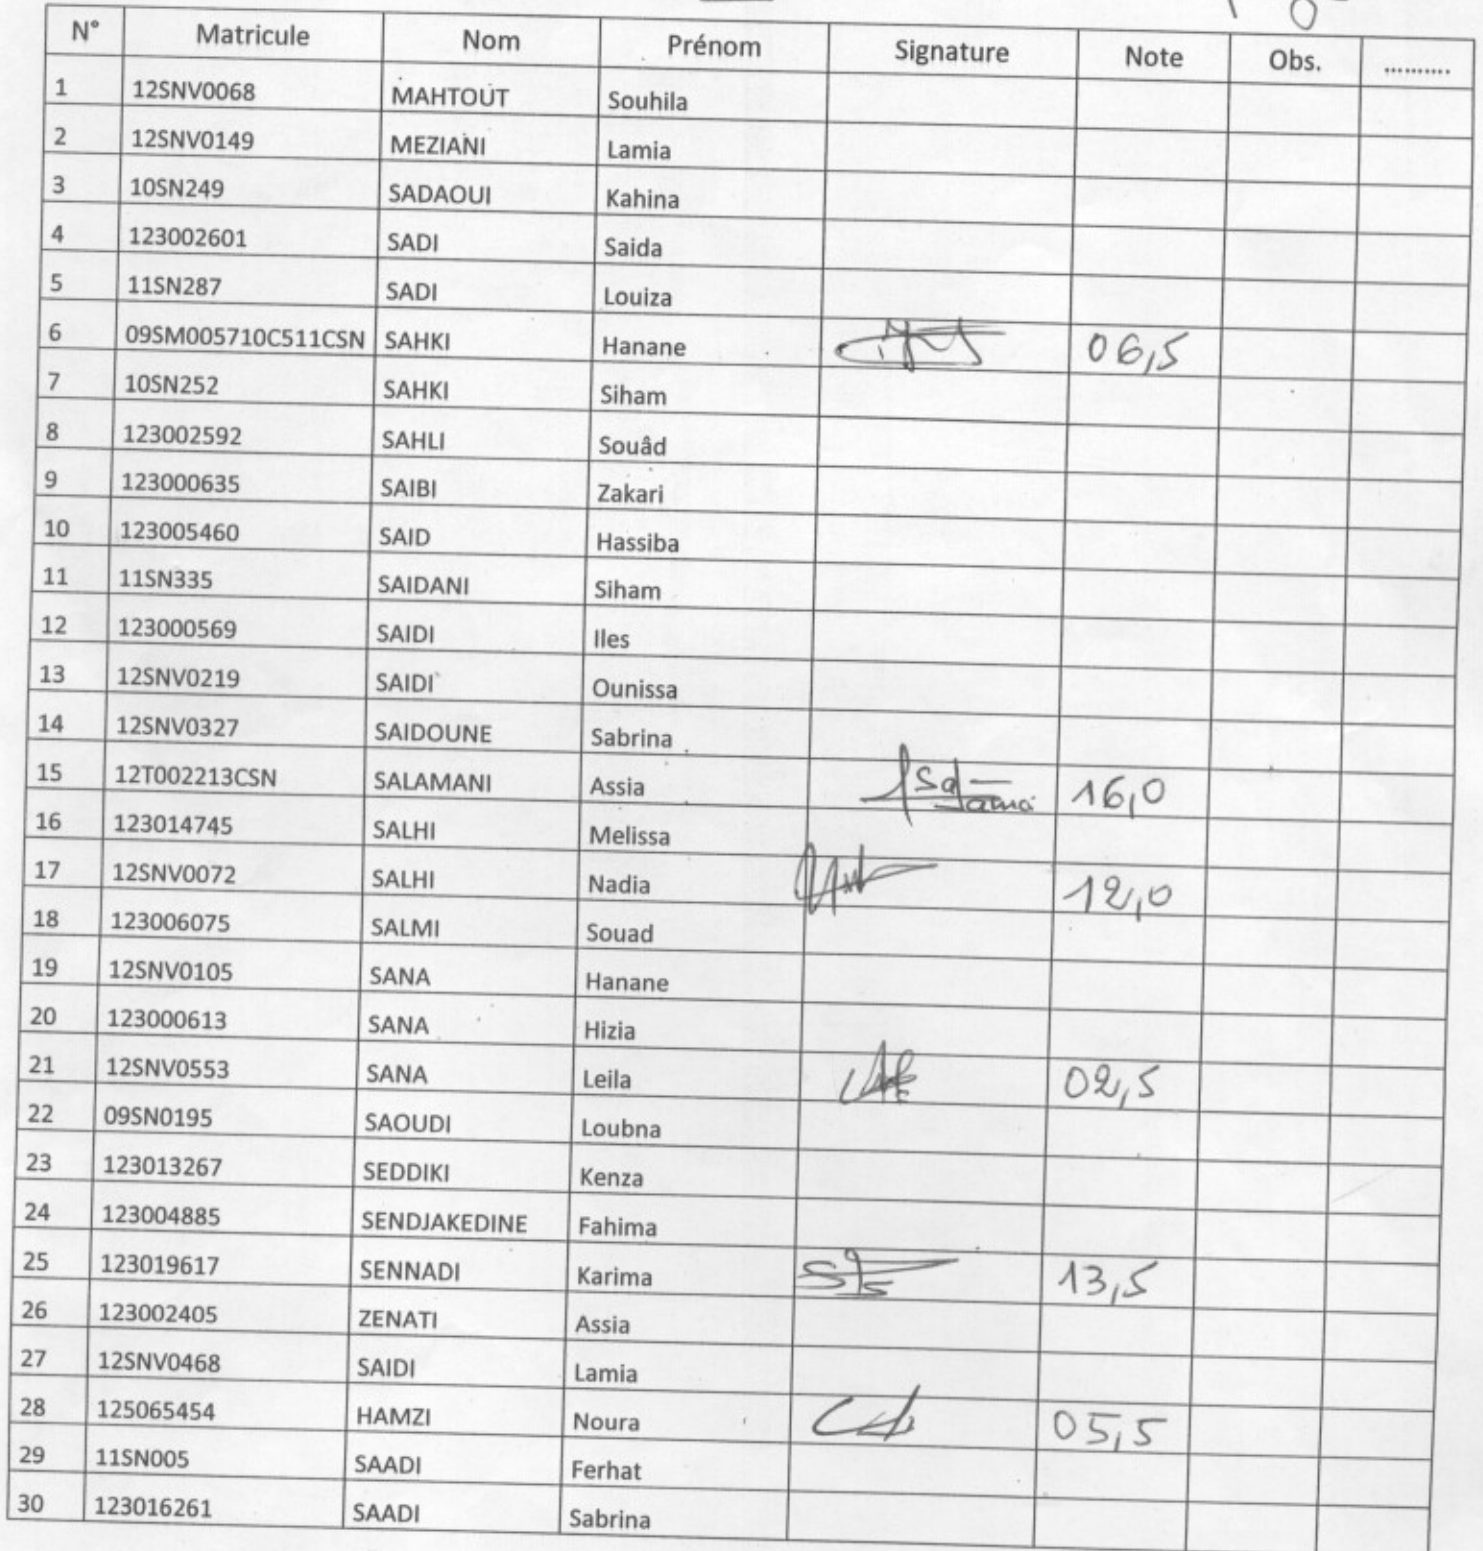 N° Matricule Nom Prénom Signature Note Obs. ..........
1 12SNV0068 MAHTOUT Souhila
2 12SNV0149 MEZIANI Lamia
3 10SN249 SADAOUI Kahina
4 123002601 SADI Saida
5 11SN287 SADI Louiza
6 09SM005710C511CSN SAHKI Hanane 06,5
7 10SN252 SAHKI Siham
8 123002592 SAHLI Souâd
9 123000635 SAIBI Zakari
10 123005460 SAID Hassiba
11 11SN335 SAIDANI Siham
12 123000569 SAIDI Iles
13 12SNV0219 SAIDI Ounissa
14 12SNV0327 SAIDOUNE Sabrina
15 12T002213CSN SALAMANI Assia 16,0
16 123014745 SALHI Melissa
17 12SNV0072 SALHI Nadia 12,0
18 123006075 SALMI Souad
19 12SNV0105 SANA Hanane
20 123000613 SANA Hizia
21 12SNV0553 SANA Leila 02,5
22 09SN0195 SAOUDI Loubna
23 123013267 SEDDIKI Kenza
24 123004885 SENDJAKEDINE Fahima
25 123019617 SENNADI Karima 13,5
26 123002405 ZENATI Assia
27 12SNV0468 SAIDI Lamia
28 125065454 HAMZI Noura 05,5
29 11SN005 SAADI Ferhat
30 123016261 SAADI Sabrina